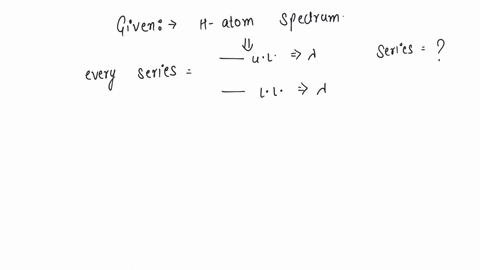 Given:→ H-atom Spectrum.
⇓
every series = — u.l. ⇒ λ
— l.l. ⇒ λ
Series = ?